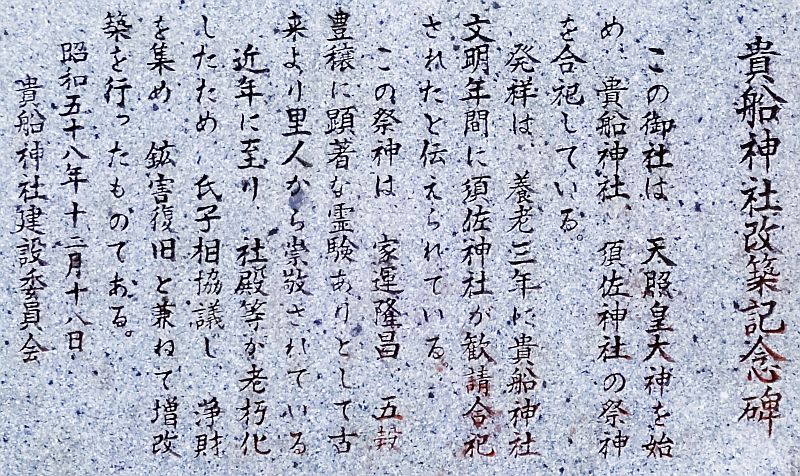 貴船神社改築記念碑
この御社は 天照皇大神を始
め 貴船神社 須佐神社の祭神
を合祀している。
発祥は、養老三年に貴船神社
文明年間に須佐神社が歓請合祀
されたと伝えられている。
この祭神は 家運隆昌 五穀
豊穣に顕著な霊験ありとして古
来より里人から崇敬されている
近年に至り 社殿等が老朽化
したため 氏子相協議し 浄財
を集め 鉱害復旧と兼ねて増改
築を行ったものである。
昭和五十八年十二月十八日
貴船神社建設委員会